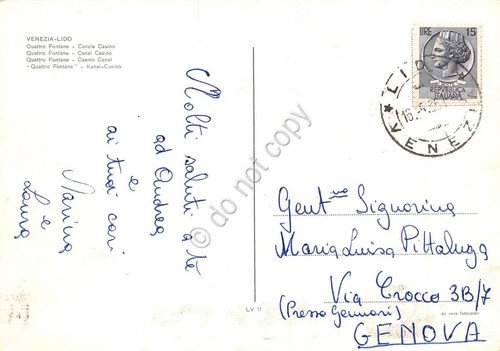 VENEZIA-LIDO
Quattro Fontane - Canale Casino
Quattro Fontane - Canal Casino
Quattro Fontane - Casinò Canal
"Quattro Fontane" - Kanal-Casino
Molti saluti a te
ad Andrea
e
ai tuoi cari
Marina
e
Laura
LIRE 15
POSTE
REPVBBLICA
ITALIANA
LIDO
VENEZI
Gent.ma Signorina
Maria Luisa Pittaluga
Via Crocco 3B/7
(Presso Gennari)
GENOVA
LV 11
da vera fotocolor
do not copy